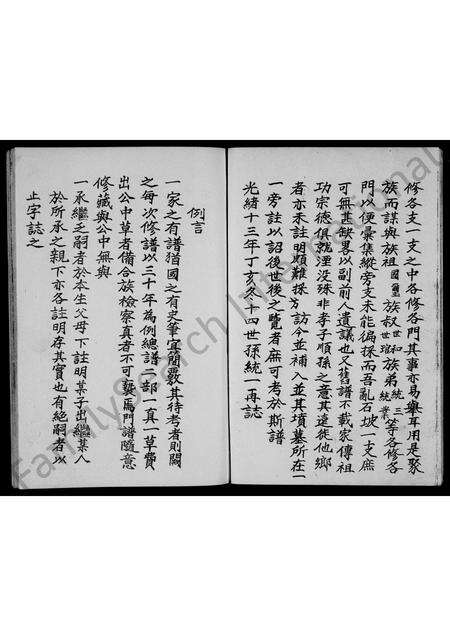 修各支一支之中各修各門其事亦易舉耳用是聚
族而謀與族祖國璽族叔世和世瑠族弟統三統業等各修各
門以便彙集縱旁支未能徧採而吾亂石坡一支庶
可無甚缺畧以副前人遺議也又舊譜不載家傳祖
功宗德俱就湮没殊非孝子順孫之意其遷徙他鄉
者亦未註明頗難採訪今並補入並其墳墓所在一
一旁註以詔後世後之覽者庶可考於斯譜
光緒十三年丁亥 十四世孫統一再誌
例言
一家之有譜猶國之有史筆宜簡嚴其待考者則闕
之每次修譜以三十年為例總譜二部一真一草費
出公中草者備合族檢察真者不可褻焉門譜隨意
修藏與公中無與
一承繼乏嗣者於本生父母下註明某子出繼某人
於所承之親下亦各註明存其實也有絕嗣者以
止字誌之
FamilySearch International